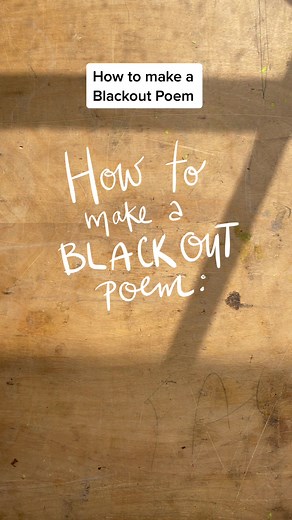 How to make a
Blackout Poem
How to
make a
BLACKOUT
poem: